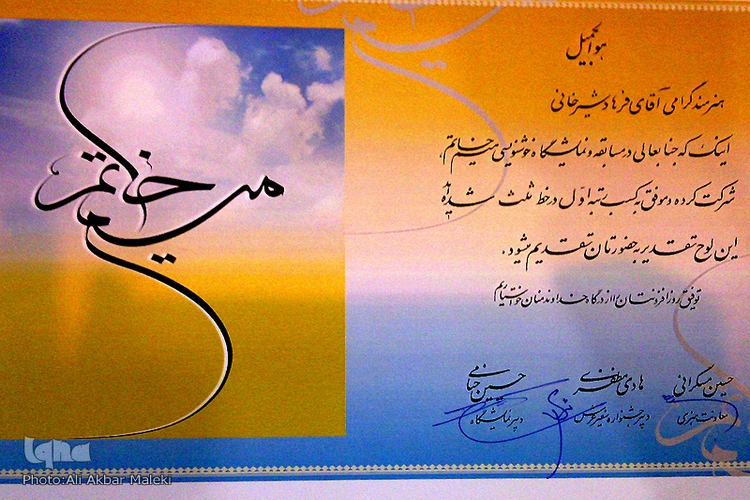 هو الجمیل
هنرمند گرامی آقای فرهاد شیرخانی
اینک که جنابعالی در مسابقه و نمایشگاه خوشنویسی میم خاتم،
شرکت کرده و موفق به کسب رتبه اول در خط ثلث شده‌اید
این لوح تقدیر به حضورتان تقدیم میشود.
توفیق روز افزونتان را از درگاه خداوند منان خواستاریم
حسین مسگرانی
معاونت هنری
هادی مظفری
دبیر جشنواره
حسین
دبیر نمایشگاه
میم خاتم
iqna
Photo:Ali Akbar Maleki